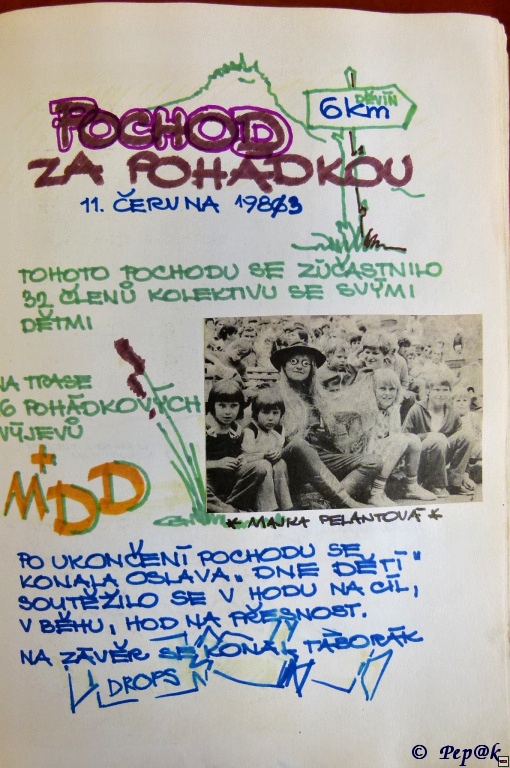 DĚVÍN
6 km
POCHOD
ZA POHÁDKOU
11. ČERVNA 1983
TOHOTO POCHODU SE ZÚČASTNILO
32 ČLENŮ KOLEKTIVU SE SVÝMI
DĚTMI
NA TRASE
6 POHÁDKOVÝCH
VÝJEVŮ
+
MDD
* MAJKA PELANTOVÁ *
PO UKONČENÍ POCHODU SE
KONALA OSLAVA „DNE DĚTÍ"
SOUTĚŽILO SE V HODU NA CÍL,
V BĚHU, HOD NA PŘESNOST.
NA ZÁVĚR SE KONAL TÁBORÁK
DROPS
© Pep@k